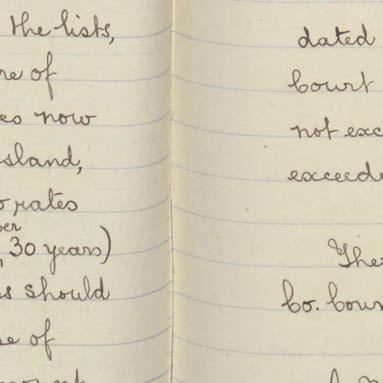 the lists,
re of
es now
sland,
rates
per
, 30 years)
s should
se of
dated
Court
not exc
exceede
The
Co. Coun